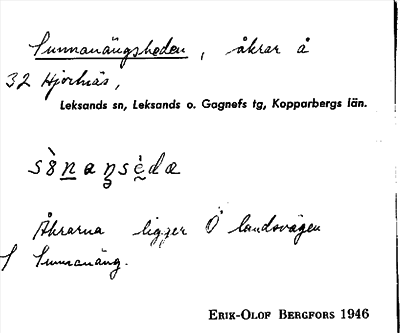 Sunnanängsheden, åkrar å
32 Hjortnäs,
Leksands sn, Leksands o. Gagnefs tg, Kopparbergs län.
Åkrarna ligger Ö landsvägen
S Sunnanäng.
ERIK-OLOF BERGFORS 1946